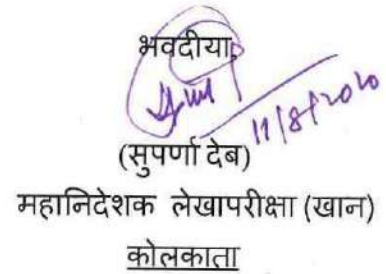 भवदीया,
11/8/2020
(सुपर्णा देब)
महानिदेशक लेखापरीक्षा (खान)
कोलकाता